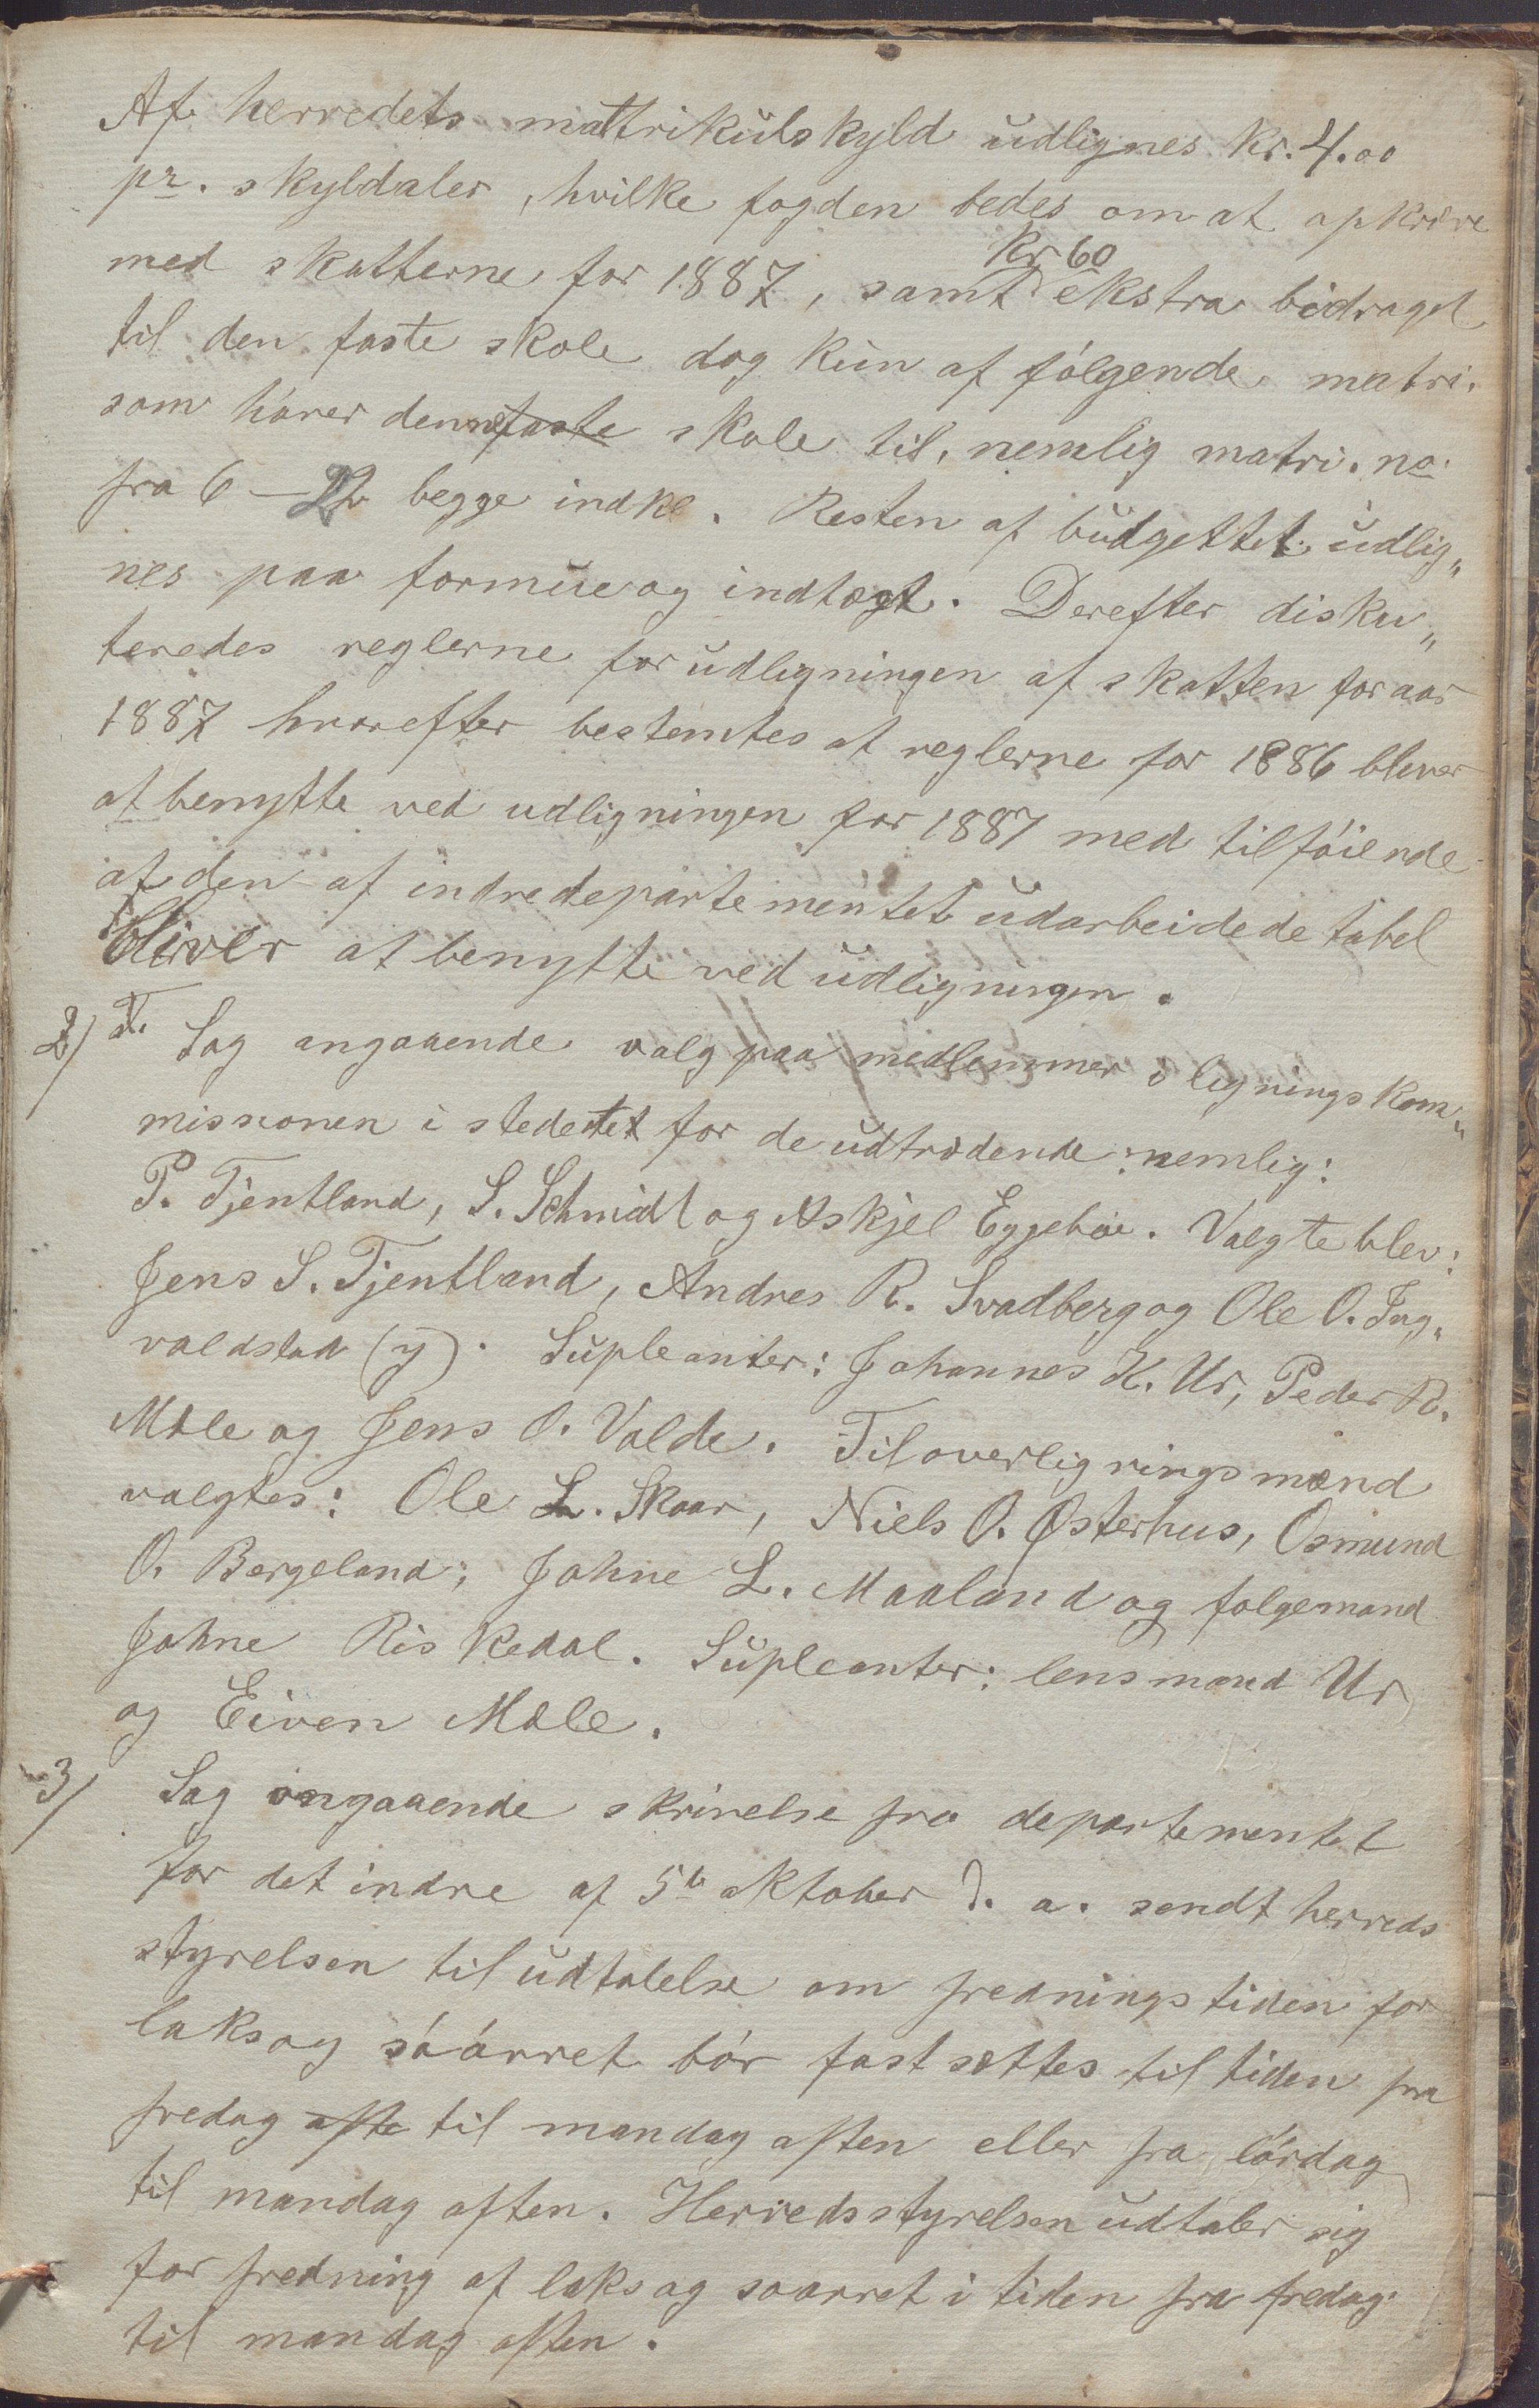 Af herredets mattrikulskyld udlignes kr. 4.00
pr. skyldaler, hvilke fogden bedes om at opkræve
kr 60
med skatterne for 1887, samt ekstra bidraget
til den faste skole dog kun af følgende matri.
som hører denne faste skole til, nemlig matri. no.
fra 6 – 22 begge indkl. Resten af budgettet udlig„
nes paa formue og indtægt. Derefter disku„
teredes reglerne for udligningen af skatten for aar
1887 hvorefter bestemtes at reglerne for 1886 bliver
at benytte ved udligningen for 1887 med tilføiende
at den af indredepartementet udarbeidede tabel
bliver at benytte ved udligningen.
2/ Sag angaaende valg paa medlemmer i lignings kom„
missionen i stedetet for de udtrædende: nemlig:
P. Tjentland, S. Schmidt og Askjel Eggebøe. Valgte blev:
Jens S. Tjentland, Andres R. Svadberg og Ole O. Ing„
valdstad (y). Supleanter: Johannes K. Ur, Peder R.
Mæle og Jens O. Valde. Til overligningsmænd
valgtes: Ole L. Skaar, Niels O. Østerhus, Osmund
O. Bergeland, Johne L. Maaland og følgemand
Johne Riskedal. Supleanter: lensmand Ur
og Eiven Mæle.
3/ Sag angaaende skrivelse fra departementet
for det indre af 5te oktober d. a. sendt herreds
styrelsen til udtalelse om fredningstiden for
laks og søørret bør fastsættes til tiden fra
fredag afte til mandag aften eller fra lørdag
til mandag aften. Herredsstyrelsen udtaler sig
for fredning af laks og søørret i tiden fra fredag
til mandag aften.